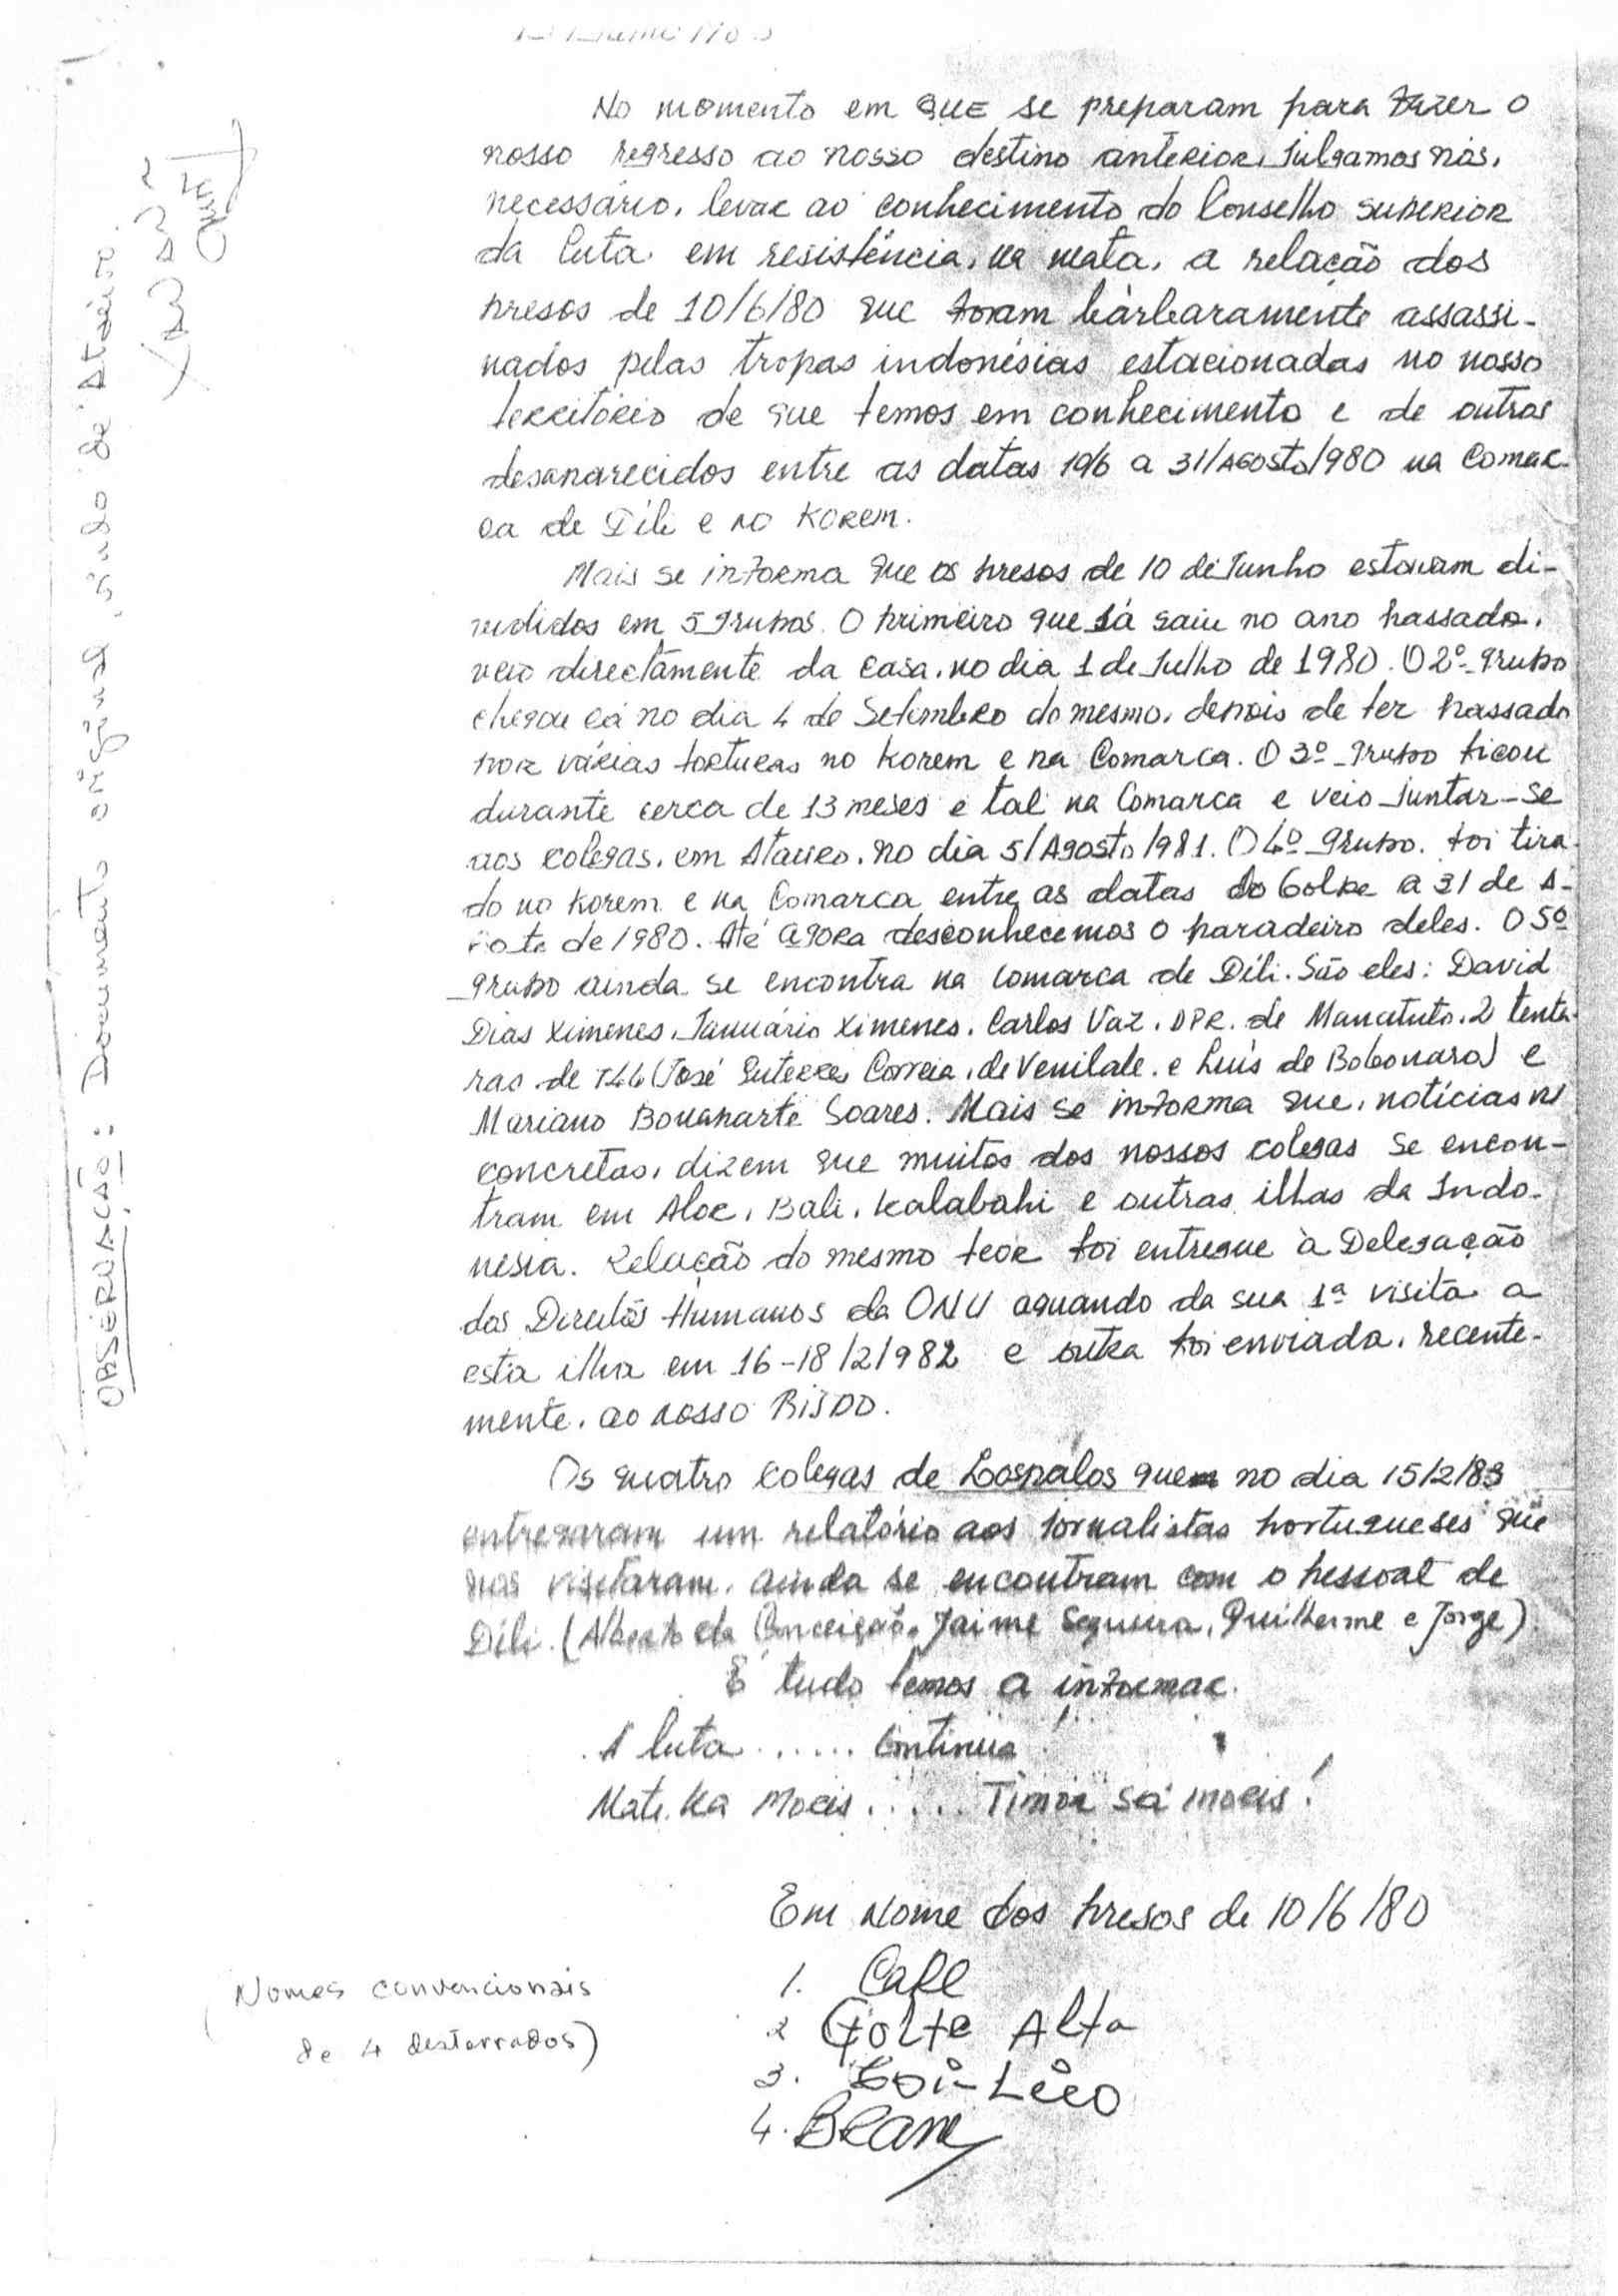 No momento em que se preparam para fazer o
nosso regresso ao nosso destino anterior, julgamos nós,
necessário, levar ao conhecimento do Conselho Superior
da luta em resistência, na mata, a relação dos
presos de 10/6/80 que foram bàrbaramente assassi-
nados pelas tropas indonésias estacionadas no nosso
território de que temos em conhecimento e de outros
desaparecidos entre as datas 10/6 a 31/Agosto/980 na Comar-
ca de Díli e no Korem.
Mais se informa que os presos de 10 de Junho estavam di-
vididos em 5 grupos. O primeiro que já saiu no ano passado,
veio directamente da casa, no dia 1 de Julho de 1980. O 2º grupo
chegou cá no dia 4 de Setembro do mesmo, depois de ter passado
por várias torturas no Korem e na Comarca. O 3º grupo ficou
durante cerca de 13 meses e tal na Comarca e veio juntar-se
aos colegas, em Ataúro, no dia 5/Agosto/981. O 4º grupo, foi tira-
do no Korem e na Comarca entre as datas do Golpe a 31 de A-
gosto de 1980. Até agora desconhecemos o paradeiro deles. O 5º
grupo ainda se encontra na comarca de Díli. São eles: David
Dias Ximenes, Januário Ximenes, Carlos Vaz, DPR. de Manatuto, 2 tenta-
ras de 744 (José Guterres Correia, de Venilale, e Luís de Bobonaro) e
Mariano Bonaparte Soares. Mais se informa que, notícias
concretas, dizem que muitos dos nossos colegas se encon-
tram em Alor, Bali, Kalabahi e outras ilhas da Indo-
nésia. Relação do mesmo teor foi entregue à Delegação
dos Direitos Humanos da ONU aquando da sua 1ª visita a
esta ilha em 16-18/2/982 e outra foi enviada, recente-
mente, ao nosso BISPO.
Os quatro colegas de Lospalos que no dia 15/2/83
entregaram um relatório aos jornalistas portugueses que
nos visitaram, ainda se encontram com o pessoal de
Díli. (Alberto da Conceição, Jaime Sequeira, Guilherme e Jorge).
É tudo temos a informar.
A luta ...... Continua!
Mate ka Moris ..... Timor sa moris!
Em nome dos presos de 10/6/80
1. Cafe
2 Golfe Alfa
3. Loi-Lico
4.
(Nomes convencionais
de 4 desterrados)
OBSERVAÇÃO: Documento original, saído de Ataúro.